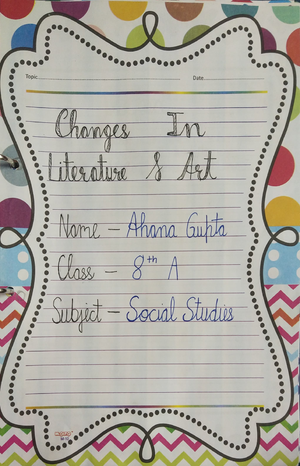 Topic
Date
Changes In
Literature & Art
Name – Ahana Gupta
Class – 8th A
Subject – Social Studies